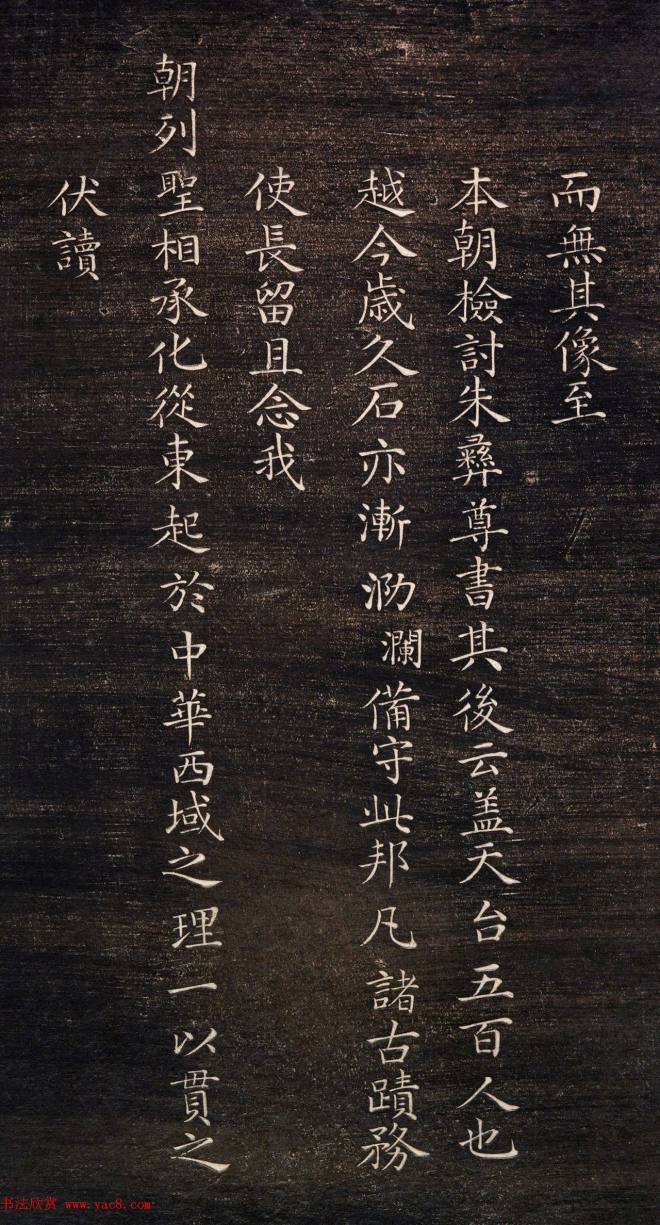 而無其像至
本朝檢討朱彝尊書其後云盖天台五百人也
越今歳久石亦漸泐瀾備守此邦凡諸古蹟務
使長留且念我
朝列聖相承化從東起於中華西域之理一以貫之
伏讀
书法欣赏 www.yac8.com